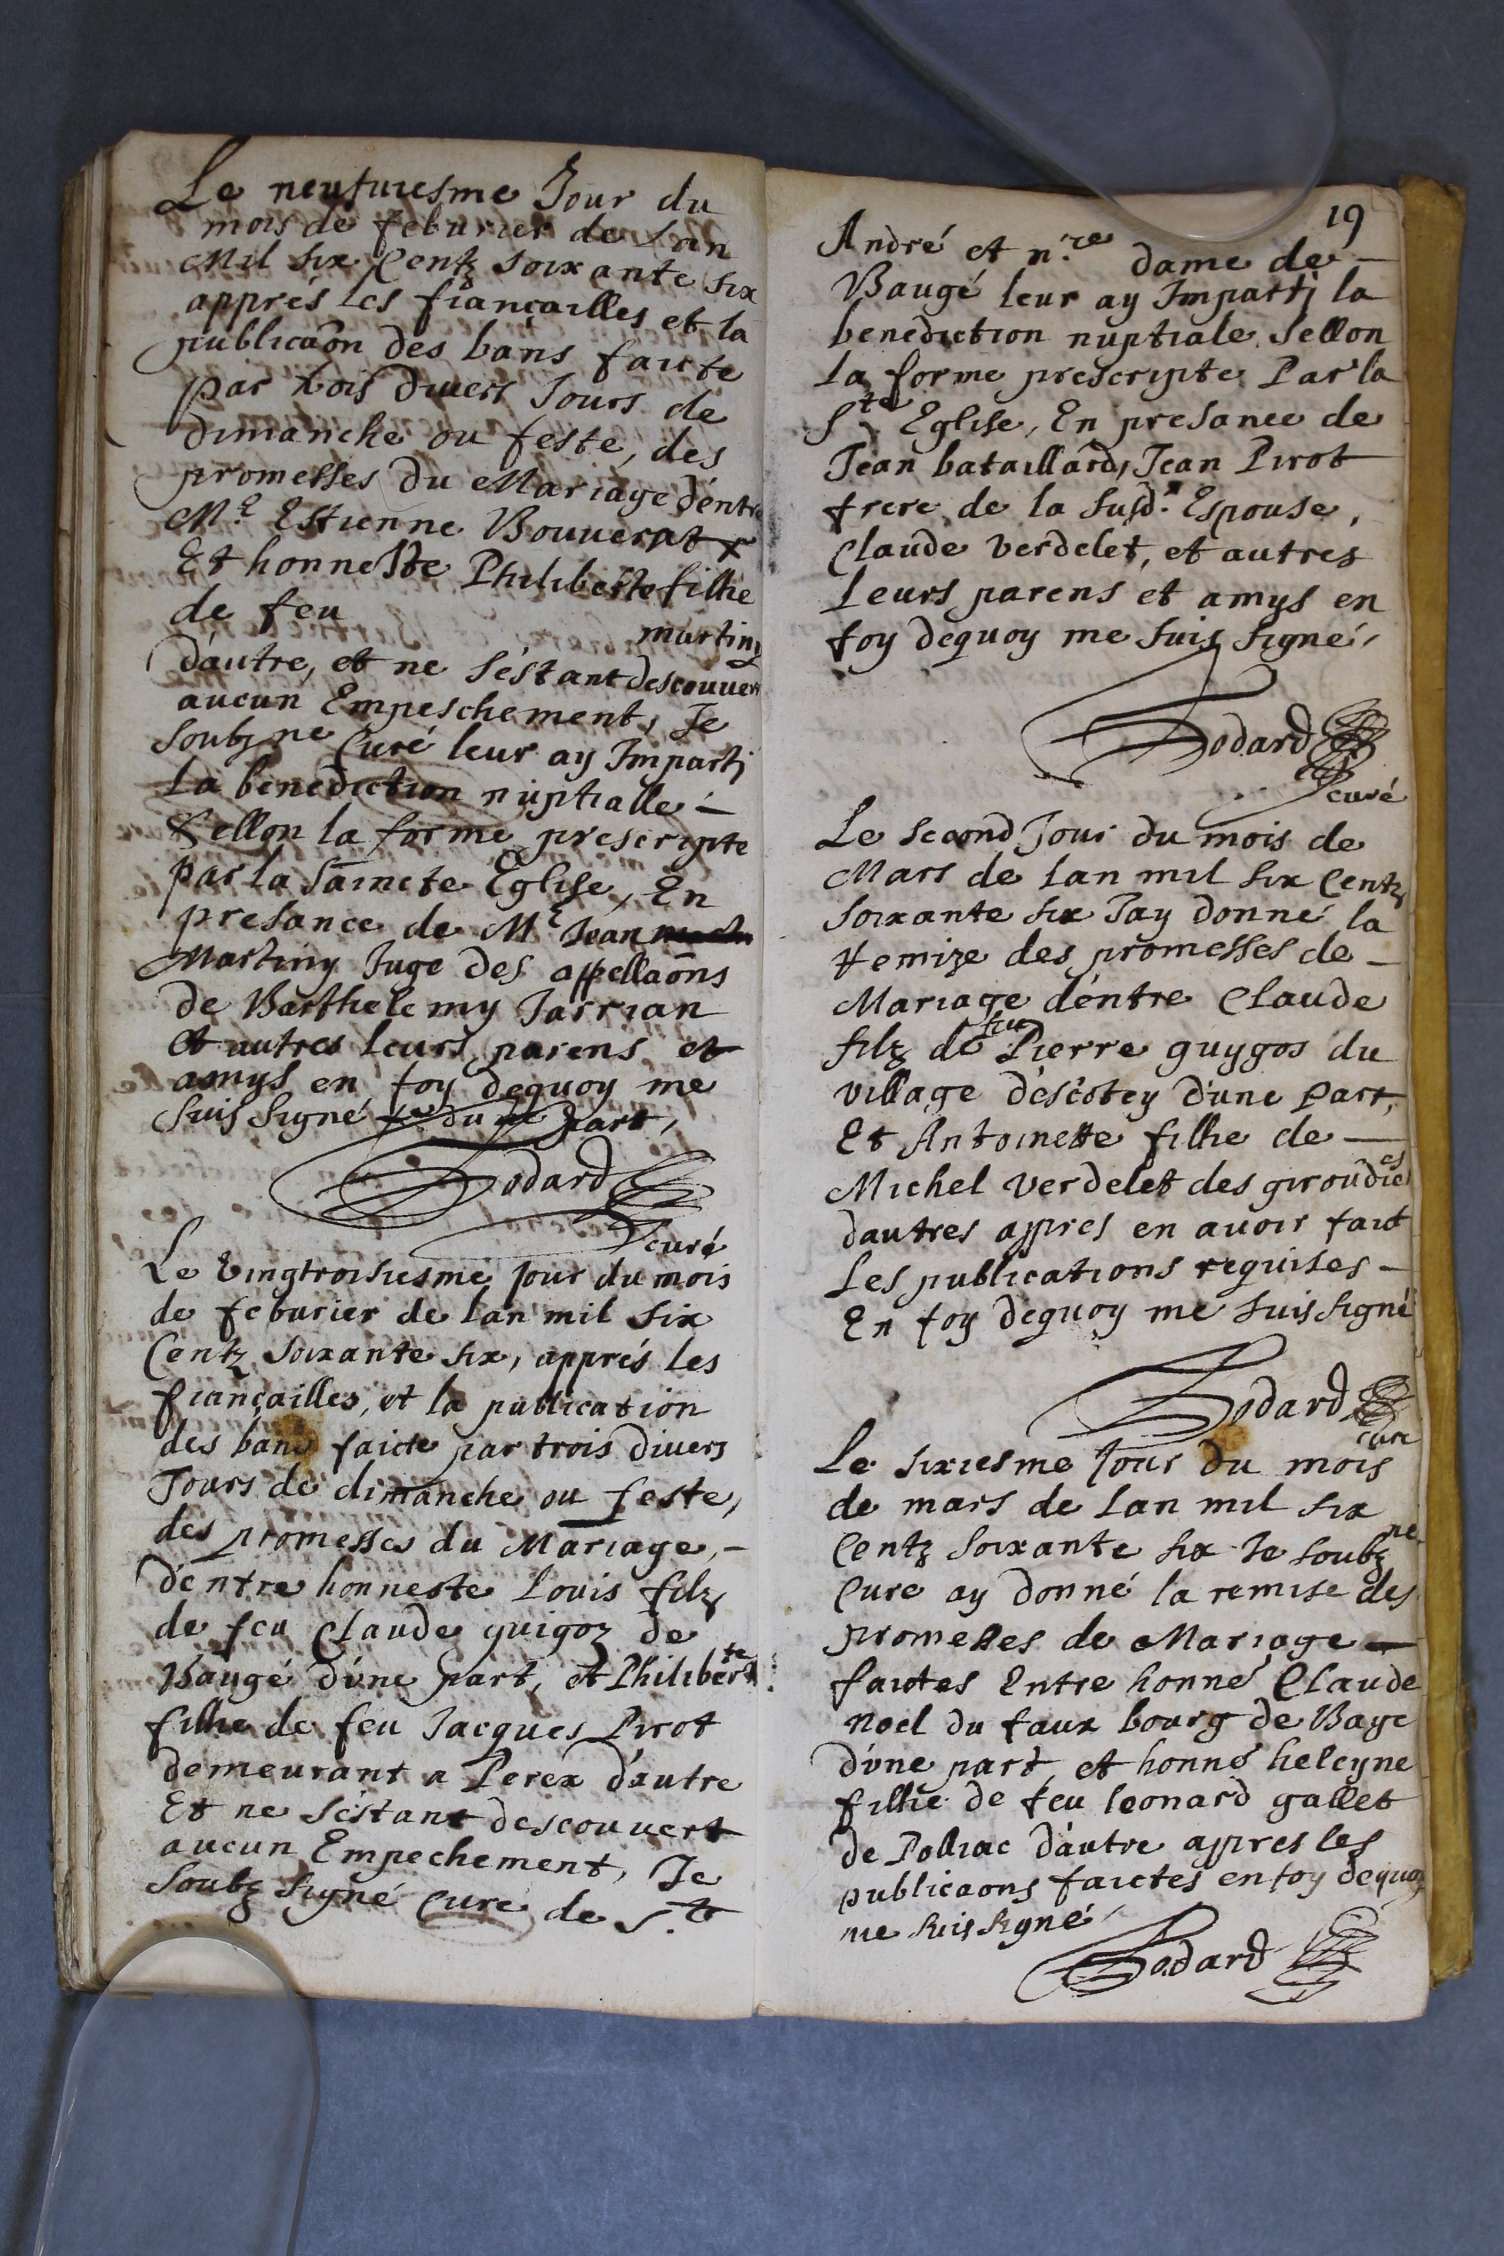 Le neufuiesme Jour du
mois de feburier de Lan
Mil six Centz soixante six
apprés les fiançailles et la
publicaõn des bans faicte
par trois divers Jours de
dimanche ou feste, des
promesses du Mariage d'entre
Mᵉ Estienne Bouverat
Et honneste Philiberte fillie
de feu
martiny
d'autre, et ne s'éstant descouvert
aucun Empeschement, Je
soubzⁿᵉ Curé leur ay Imparti
La benediction nuptialle -
Sellon la forme prescripte
par la Saincte Eglise, En
presance de Mᵉ Jean
Martiny Juge des appellaõns
de Barthelemy Jarrian
et autres leurs parens et
amys en foy dequoy me
suis signé du part,
Bodard
curé
Le Vingtroisiesme Jour du mois
de feburier de lan mil six
Centz soixante six, apprés les
fiançailles, et la publication
des bans faicte par trois divers
Jours de dimanche ou feste,
des promesses du Mariage, -
d'entre honneste Louis filz
de feu Claude guigoz de
Baugé d'une part, et Philiberte
fillie de feu Jacques Pirot
demeurant a Perex d'autre
Et ne s'éstant descouvert
aucun Empechement, Je
Soubz signé Curé de Sᵗ
19
André et n.ʳᵉ dame de -
Baugé leur ay Imparti la
benediction nuptiale Sellon
La forme prescripte Par la
Sᵗᵉ Eglise, En presance de
Jean bataillard, Jean Pirot
frere de la susd. Espouse,
Claude Verdelet, et autres
Leurs parens et amys en
foy dequoy me suis signé,
Bodard
curé
Le second Jour du mois de
Mars de lan mil six Centz
soixante six Jay donné la
remize des promesses de -
Mariage d'entre Claude
filz de feu Pierre guygos du
village d'ésċotey d'une part,
Et Antoinette fillie de -
Michel Verdelet des giroudies
dautres appres en avoir faict
Les publications requises -
En foy dequoy me suis signé
Bodard
curé
Le sixiesme Jour du mois
de mars de lan mil six
Centz soixante six Je soubzⁿᵉ
Curé ay donné la remise des
promesses de Mariage -
faictes Entre honné Claude
noel du faux bourg de Bage
d'une part et honné heleyne
fillie de feu leonard gallet
de Polliac d'autre appres les
publicaons faictes en foy dequoy
me suis signé,
Bodard